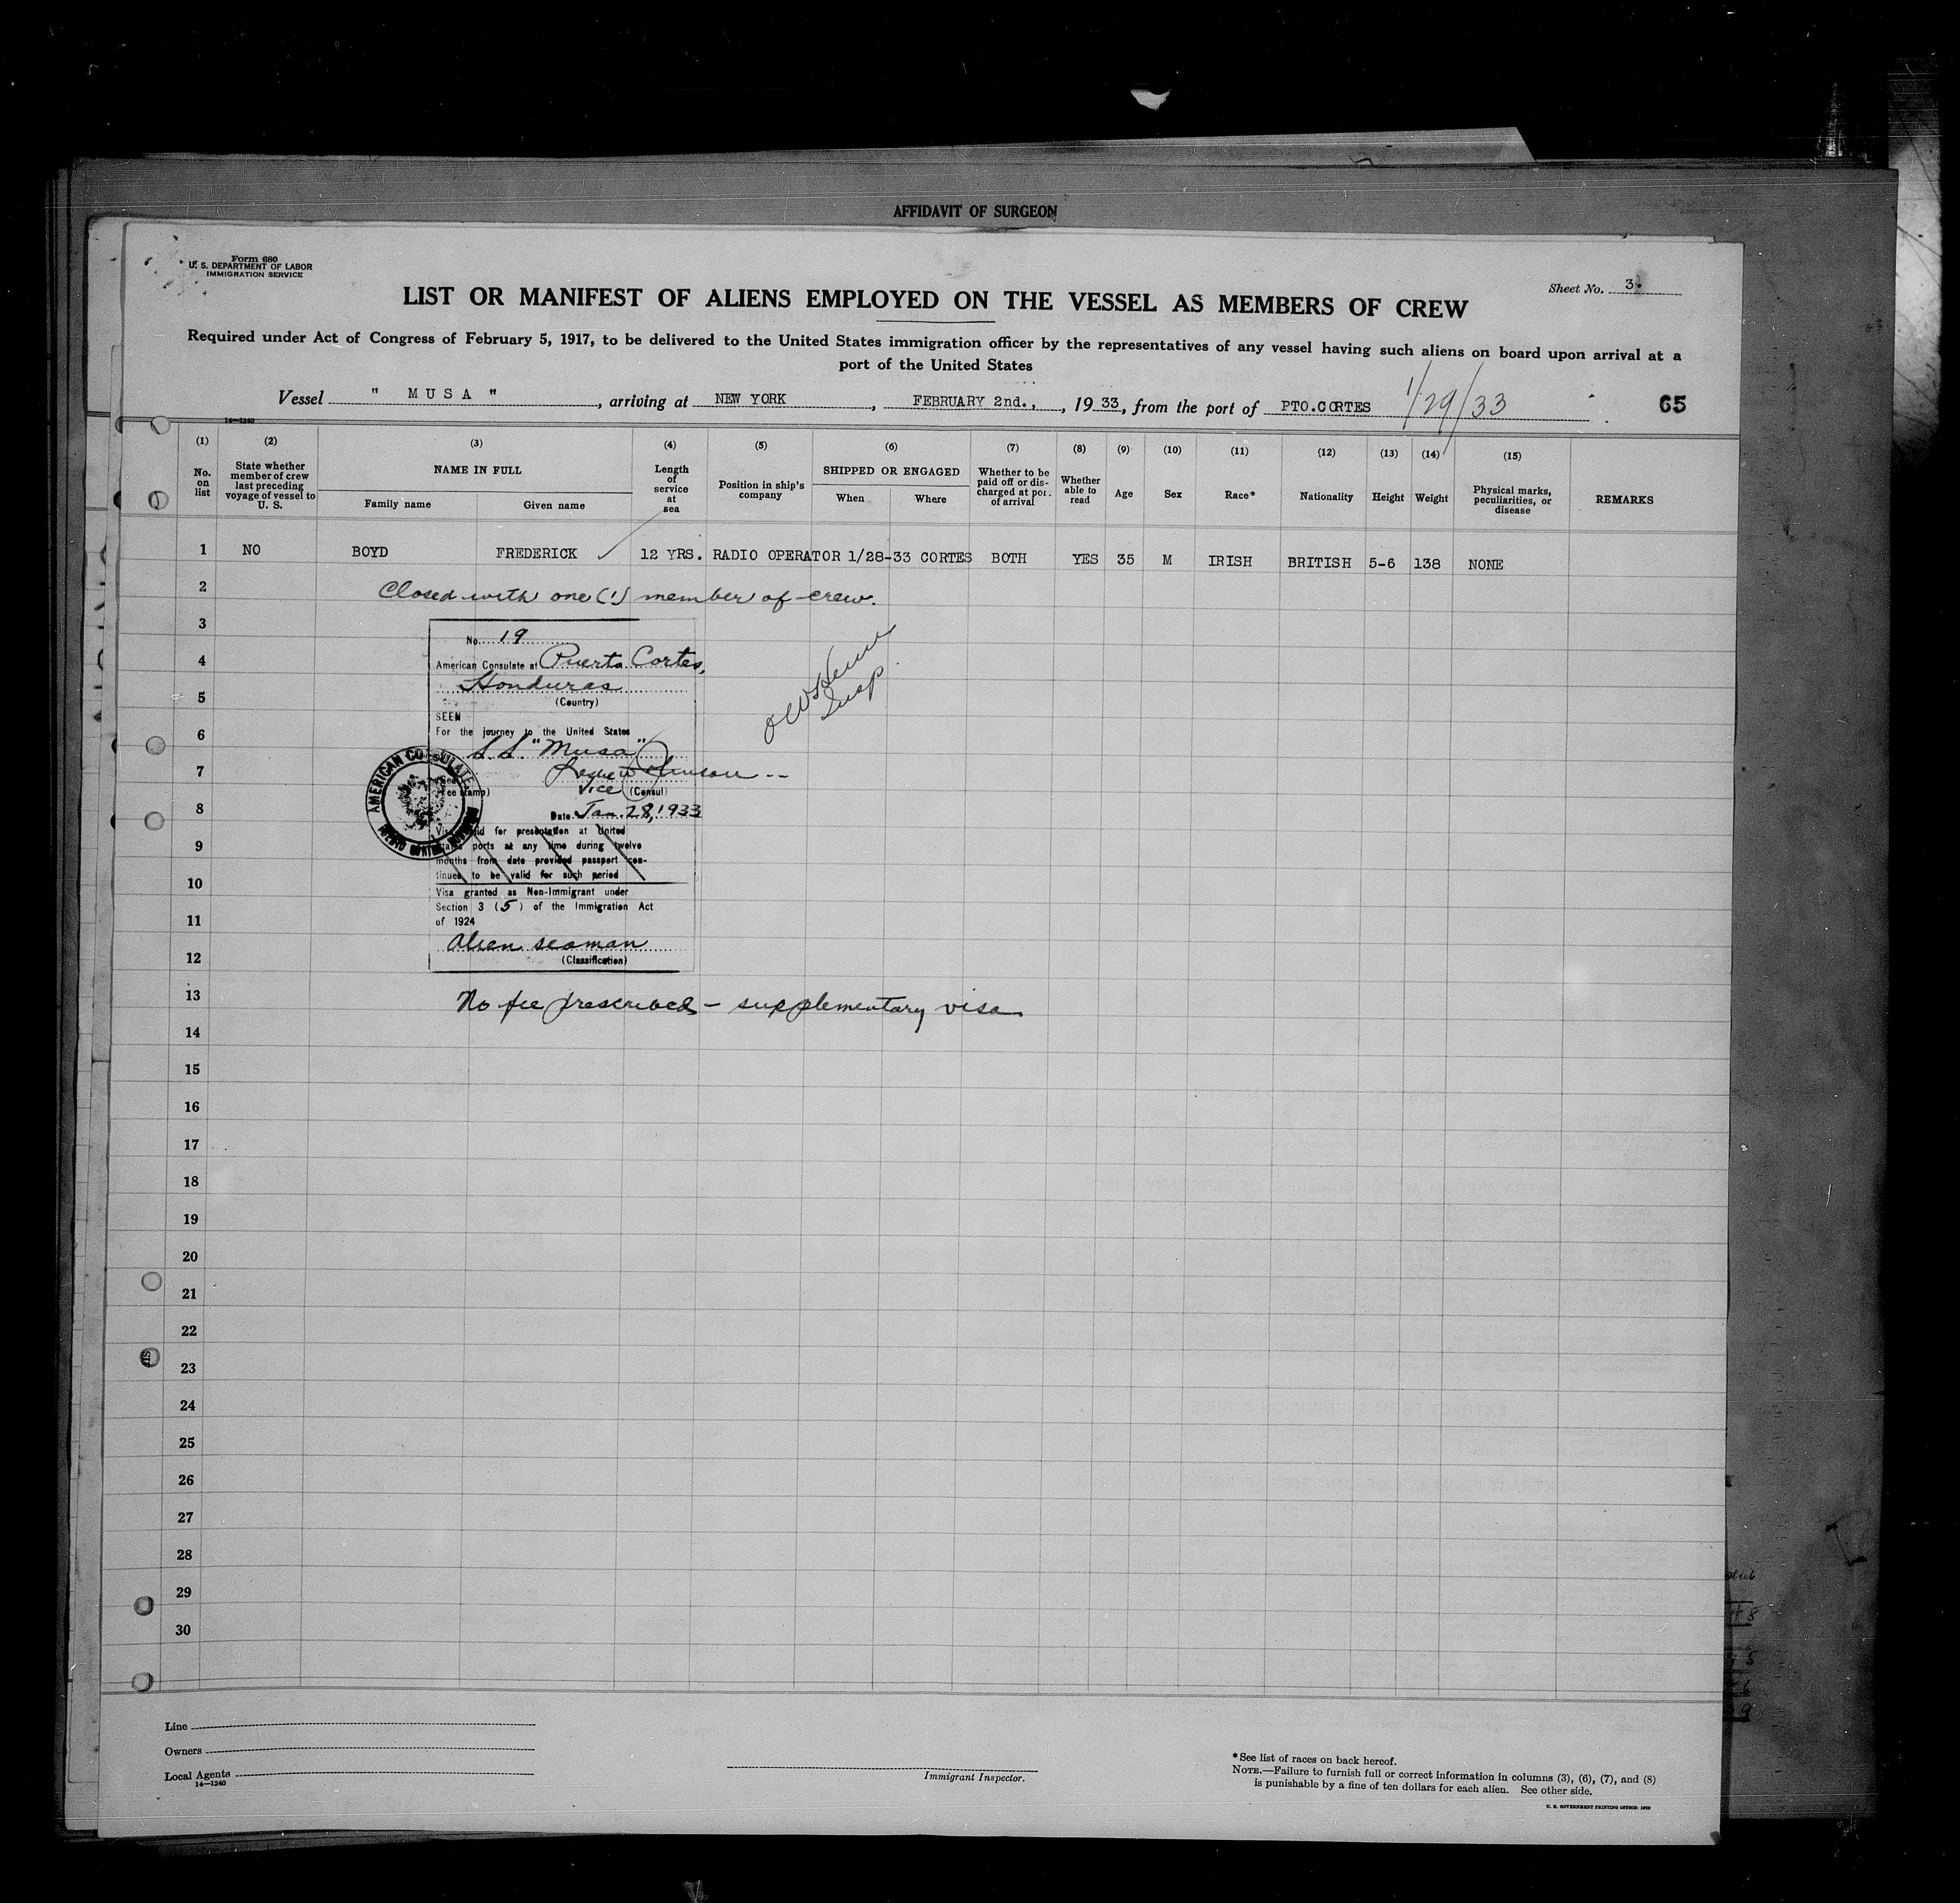 AFFIDAVIT OF SURGEON
Form 680
U. S. DEPARTMENT OF LABOR
IMMIGRATION SERVICE
Sheet No. 3.
LIST OR MANIFEST OF ALIENS EMPLOYED ON THE VESSEL AS MEMBERS OF CREW
Required under Act of Congress of February 5, 1917, to be delivered to the United States immigration officer by the representatives of any vessel having such aliens on board upon arrival at a
port of the United States
Vessel " MUSA ", arriving at NEW YORK, FEBRUARY 2nd., 1933, from the port of PTO.CORTES 1/29/33 65
14—1240
(1) (2) (3) (4) (5) (6) (7) (8) (9) (10) (11) (12) (13) (14) (15)
No. on list
State whether member of crew last preceding voyage of vessel to U. S.
NAME IN FULL
Family name Given name
Length of service at sea
Position in ship's company
SHIPPED OR ENGAGED
When Where
Whether to be paid off or discharged at port of arrival
Whether able to read
Age
Sex
Race*
Nationality
Height
Weight
Physical marks, peculiarities, or disease
REMARKS
1 NO BOYD FREDERICK 12 YRS. RADIO OPERATOR 1/28-33 CORTES BOTH YES 35 M IRISH BRITISH 5-6 138 NONE
2 Closed with one (1) member of crew.
3
No. 19
4
American Consulate at Puerto Cortes,
Honduras
5
(Country)
SEEN
6
For the journey to the United States
S.S. "Musa"
7
Vice (Consul)
8
Date Jan. 28, 1933
AMERICAN CONSULATE
Visa valid for presentation at United
9
States ports at any time during twelve
months from date provided passport con-
tinues to be valid for such period
10
Visa granted as Non-Immigrant under
Section 3 (5) of the Immigration Act
11
of 1924
Alien seaman
12
(Classification)
Insp.
13
No fee prescribed - supplementary visa
14
15
16
17
18
19
20
21
22
23
24
25
26
27
28
29
30
Line
Owners
Local Agents
14—1240
Immigrant Inspector.
*See list of races on back hereof.
NOTE.—Failure to furnish full or correct information in columns (3), (6), (7), and (8)
is punishable by a fine of ten dollars for each alien. See other side.